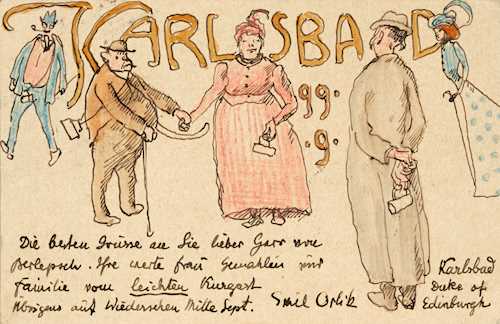 KARLSBAD
99.
.9.
Die besten Grüsse an Sie lieber Herr von
Berlepsch. Ihre werte Frau Gemahlin und
Familie vom leichten Kurgast
übrigens auf Wiedersehen Mitte Sept. Emil Orlik
Karlsbad
Duke of
Edinburgh